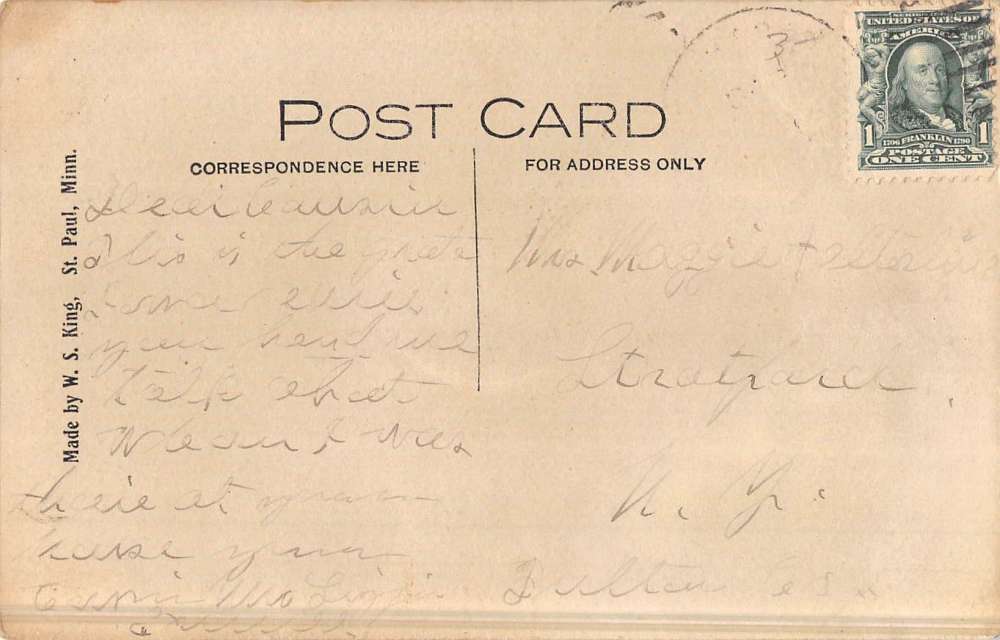 POST CARD
CORRESPONDENCE HERE
FOR ADDRESS ONLY
Made by W. S. King, St. Paul, Minn.
SERIES 1902
UNITED STATES OF
AMERICA
1 1
1706 FRANKLIN 1790
POSTAGE
ONE CENT
3
Dear Cousin
this is the
you heard me
talk about
when I was
there at your
house your
Cousin Mrs Lizzie
Mrs Maggie
Stratford
N. Y.
Fulton Co.